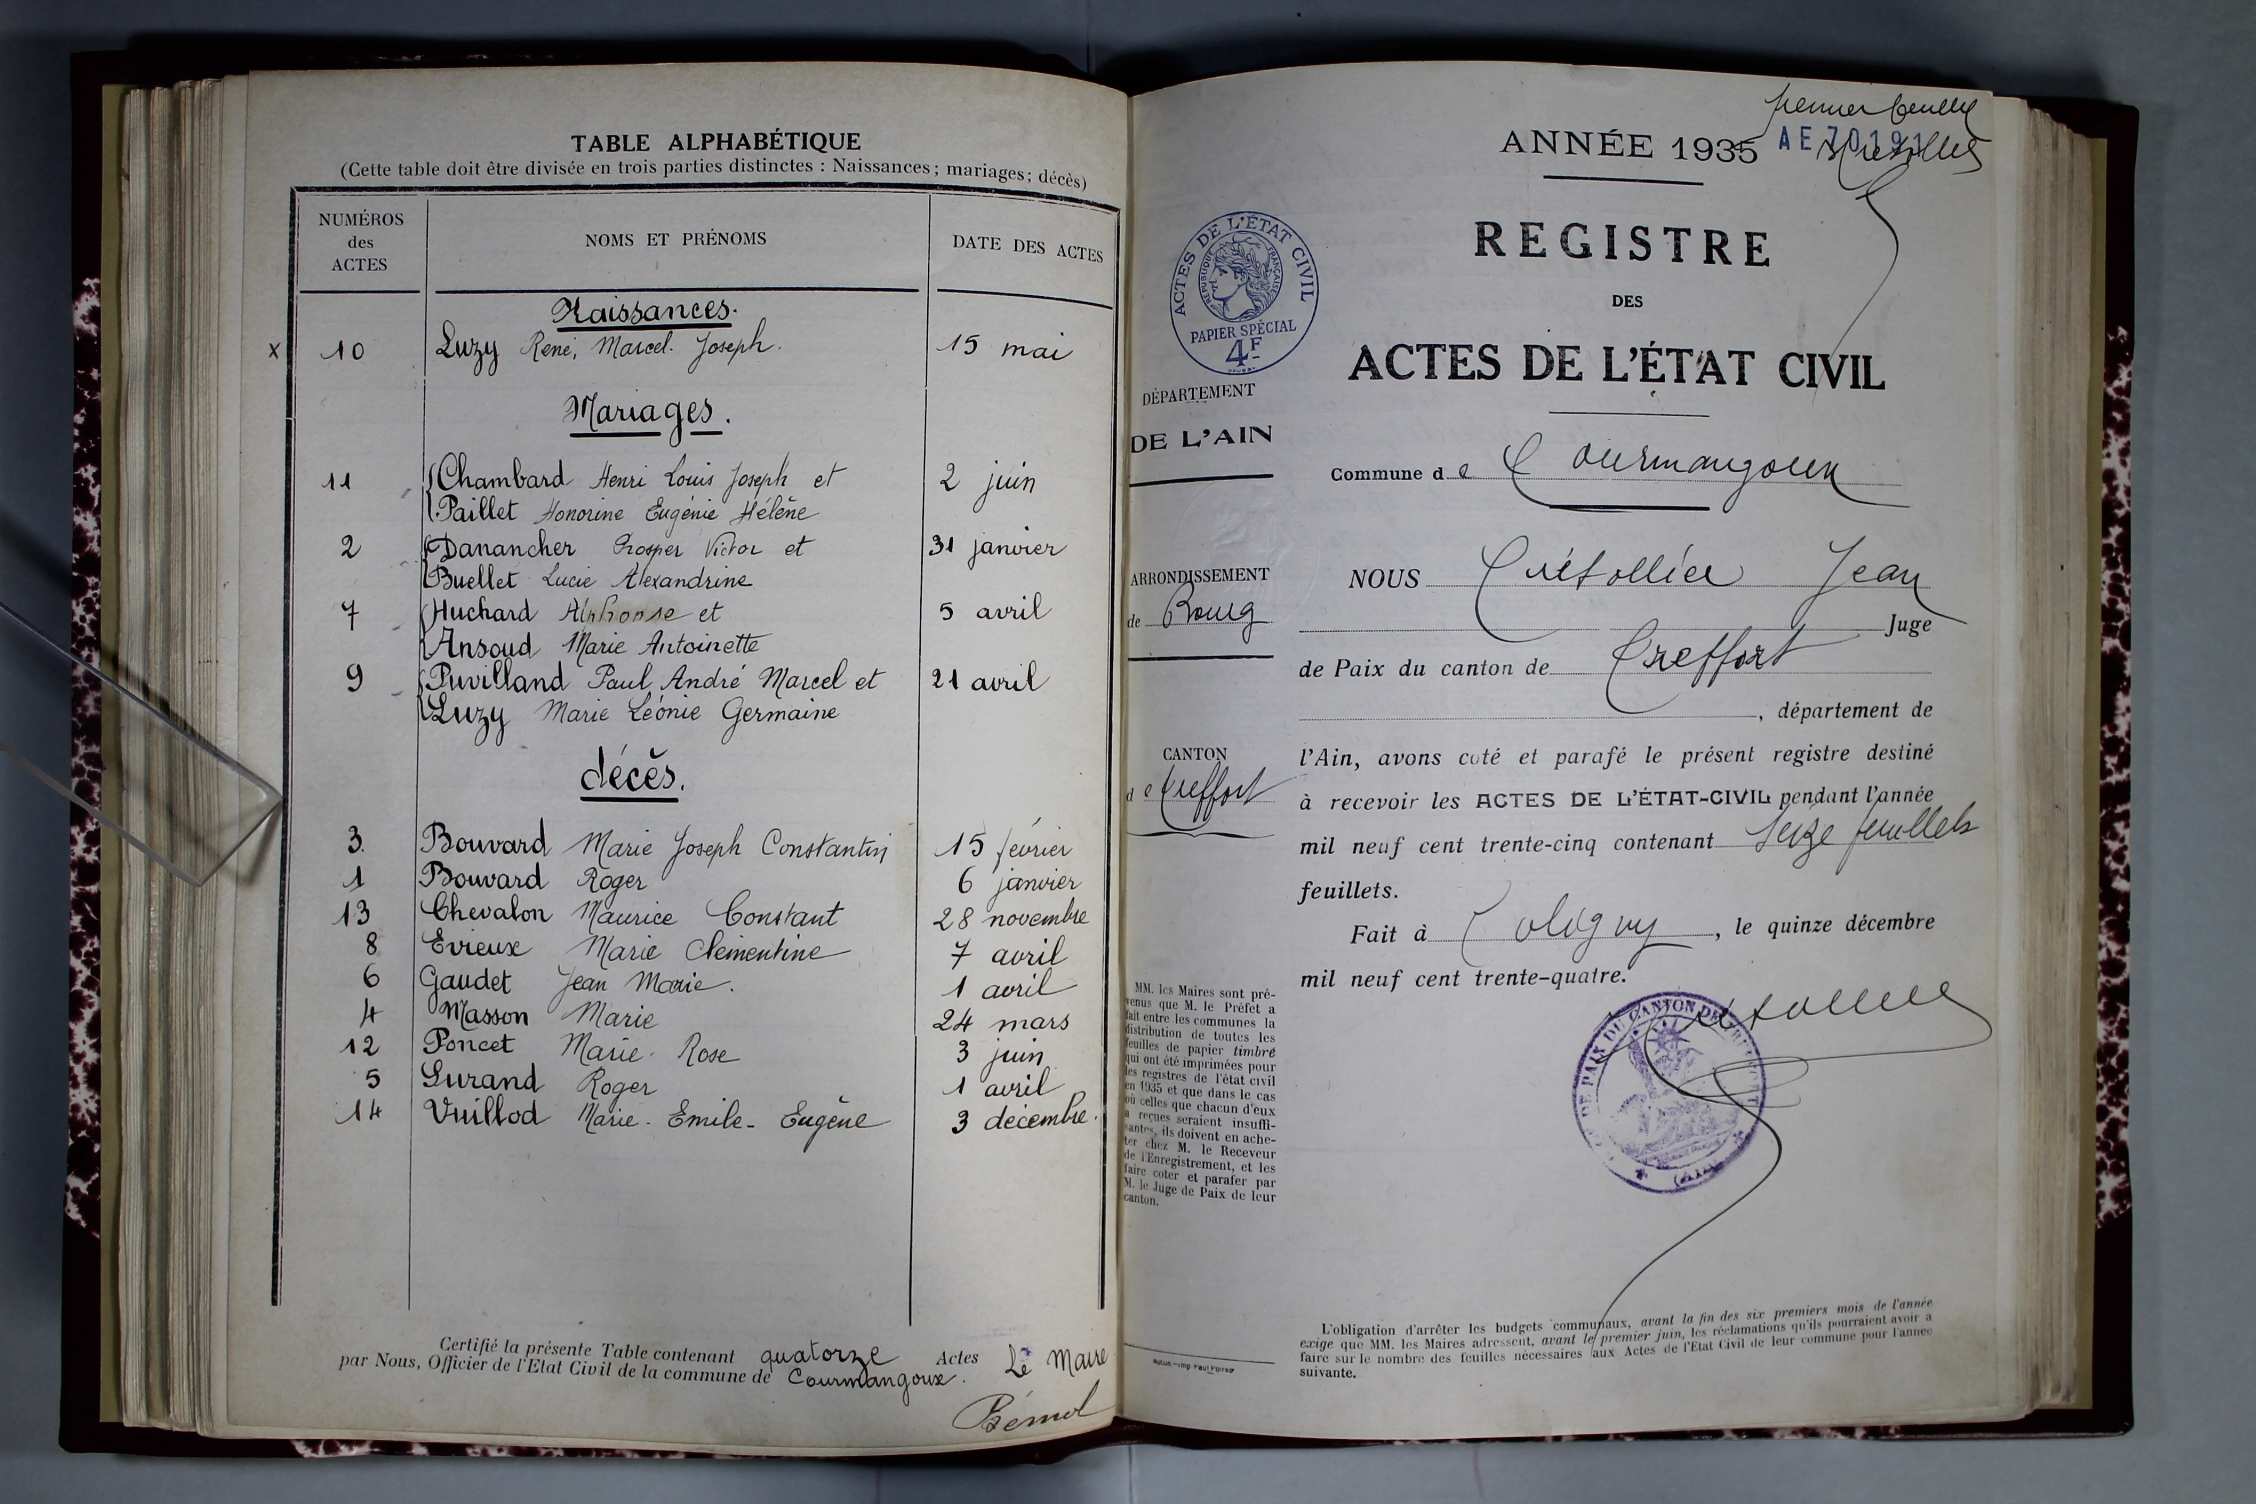 TABLE ALPHABÉTIQUE
(Cette table doit être divisée en trois parties distinctes : Naissances ; mariages ; décès)
NUMÉROS
des
ACTES
NOMS ET PRÉNOMS
DATE DES ACTES
Naissances.
x 10 Luzy René, Marcel. Joseph. 15 mai
Mariages.
11 Chambard Henri Louis Joseph et 2 juin
Paillet Honorine Eugénie Hélène
2 Danancher Prosper Victor et 31 janvier
Buellet Lucie Alexandrine
7 Huchard Alphonse et 5 avril
Ansoud Marie Antoinette
9 Puvilland Paul André Marcel et 21 avril
Luzy Marie Léonie Germaine
décès.
3. Bouvard Marie Joseph Constantin 15 février
1 Bouvard Roger 6 janvier
13 Chevalon Maurice Constant 28 novembre
8 Evieux Marie Clémentine 7 avril
6 Gaudet Jean Marie. 1 avril
4 Masson Marie 24 mars
12 Poncet Marie. Rose 3 juin
5 Surand Roger 1 avril
14 Vuillod Marie - Emile - Eugène 3 décembre.
Certifié la présente Table contenant quatorze Actes
par Nous, Officier de l'Etat Civil de la commune de Courmangoux. Le Maire
premier feuillet
ANNÉE 1935
REGISTRE
DES
ACTES DE L'ÉTAT CIVIL
ACTES DE L'ÉTAT CIVIL
RÉPUBLIQUE FRANÇAISE
PAPIER SPÉCIAL
4F
DÉPARTEMENT
DE L'AIN
Commune de Courmangoux
ARRONDISSEMENT
de Bourg
NOUS Jean
Juge
de Paix du canton de Treffort
, département de
CANTON
de Treffort
l'Ain, avons coté et parafé le présent registre destiné
à recevoir les ACTES DE L'ÉTAT-CIVIL pendant l'année
mil neuf cent trente-cinq contenant Seize feuillets
feuillets.
Fait à Coligny, le quinze décembre
mil neuf cent trente-quatre.
MM. les Maires sont pré-
venus que M. le Préfet a
fait entre les communes la
distribution de toutes les
feuilles de papier timbré
qui ont été imprimées pour
les registres de l'état civil
en 1935 et que dans le cas
où celles que chacun d'eux
a reçues seraient insuffi-
santes, ils doivent en ache-
ter chez M. le Receveur
de l'Enregistrement, et les
faire coter et parafer par
M. le Juge de Paix de leur
canton.
L'obligation d'arrêter les budgets communaux, avant la fin des six premiers mois de l'année
exige que MM. les Maires adressent, avant le premier juin, les réclamations qu'ils pourraient avoir à
faire sur le nombre des feuilles nécessaires aux Actes de l'Etat Civil de leur commune pour l'année
suivante.